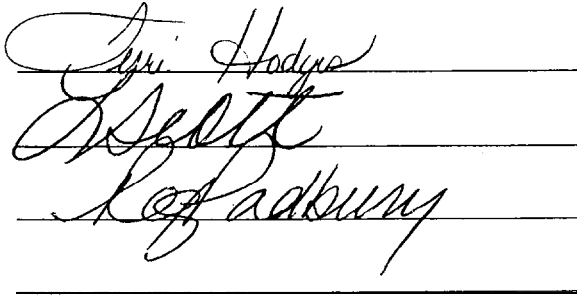 Terri Hodges
L Scott
Roz Padbury